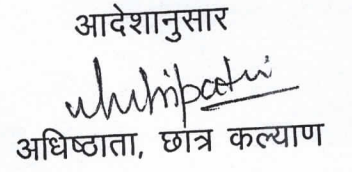 आदेशानुसार
अधिष्ठाता, छात्र कल्याण